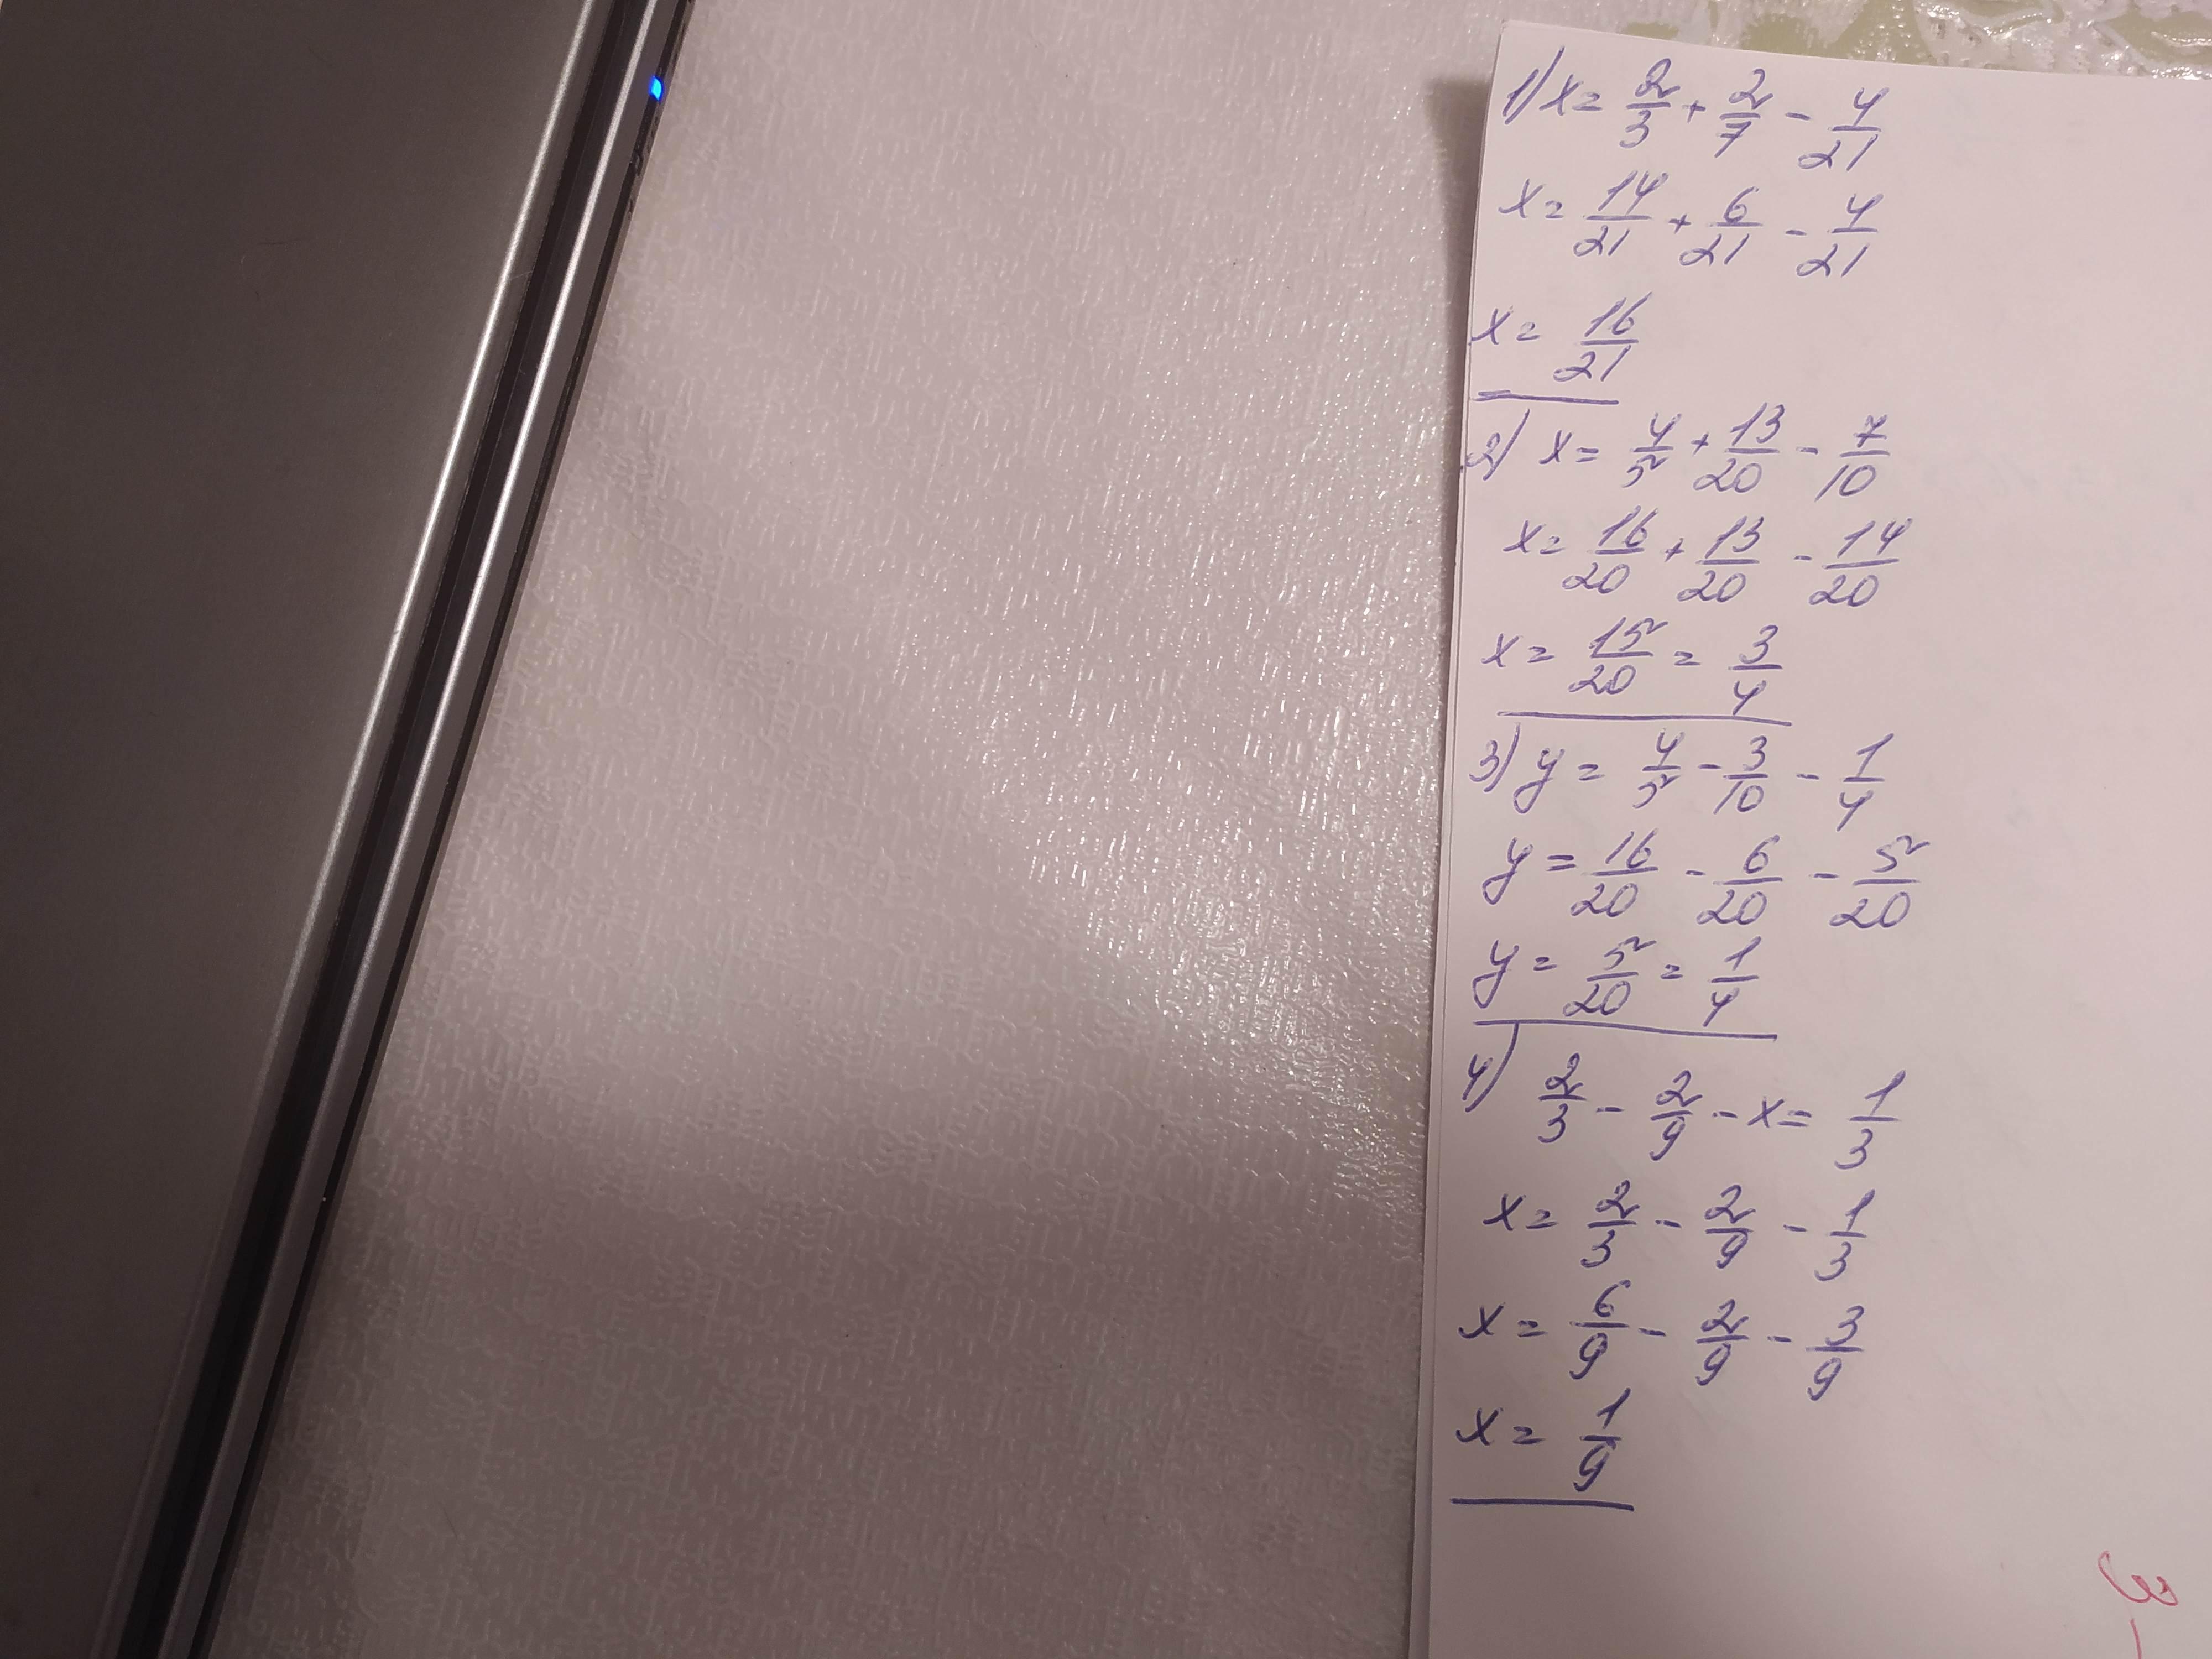 1) x = 2/3 + 2/7 - 4/21
x = 14/21 + 6/21 - 4/21
x = 16/21
2) x = 4/5 + 13/20 - 7/10
x = 16/20 + 13/20 - 14/20
x = 15/20 = 3/4
3) y = 4/5 - 3/10 - 1/4
y = 16/20 - 6/20 - 5/20
y = 5/20 = 1/4
4) 2/3 - 2/9 - x = 1/3
x = 2/3 - 2/9 - 1/3
x = 6/9 - 2/9 - 3/9
x = 1/9